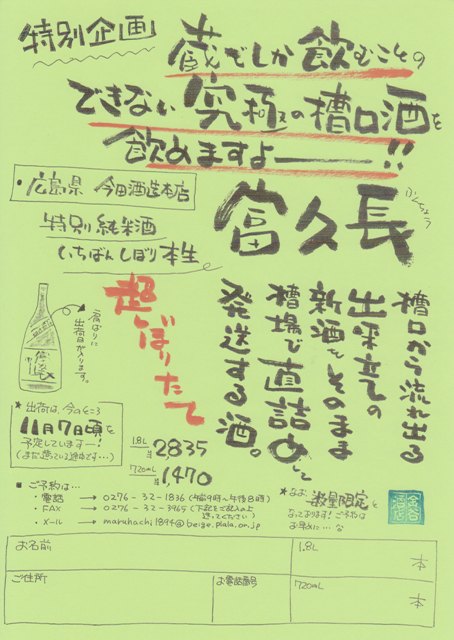 特別企画
蔵でしか飲むことの
できない究極の槽口酒を
飲めますよーーー!!
・広島県 今田酒造本店
富久長
特別純米酒
いちばんしぼり本生
超しぼりたて
槽口から流れ出る
出来立ての
新酒をそのまま
槽場で直詰めして
発送する酒。
肩ばりに
出荷日が入ります。
★出荷は、今のところ
11月7日頃を
予定していますー!
1.8L ¥2835
720mL ¥1,470
★なお、数量限定と
なっております!ご予約は
お早めに…な
■ ご予約は…
・電話 → 0276-32-1836 (午前9時~午後8時)
・FAX → 0276-32-3965 (下記をご記入の上 送ってください)
・メール → maruhachi1894@beige.plala.or.jp
お名前
1.8L 本
ご住所
お電話番号
720mL 本